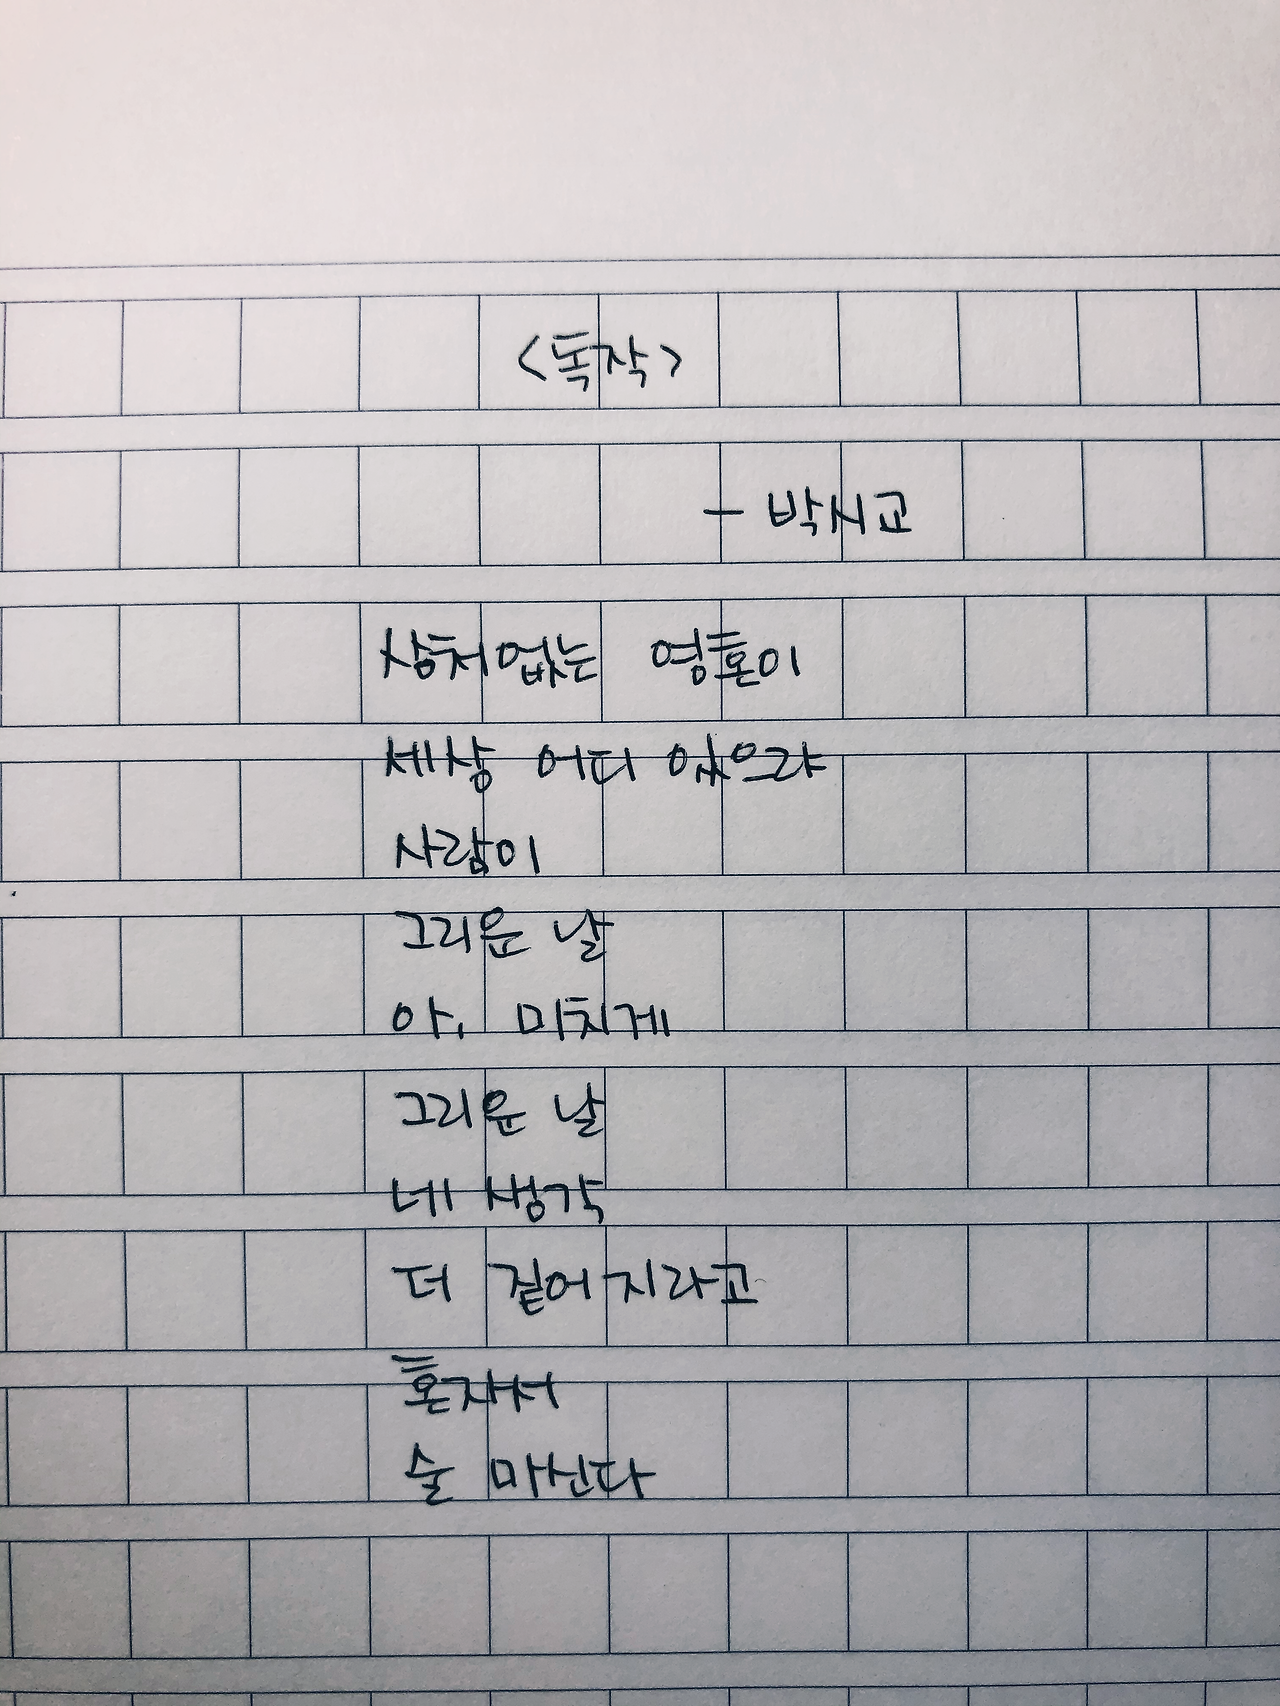 <독작>
- 박시교
상처없는 영혼이
세상 어디 있으랴
사람이
그리운 날
아, 미치게
그리운 날
네 생각
더 짙어지라고
혼자서
술 마신다